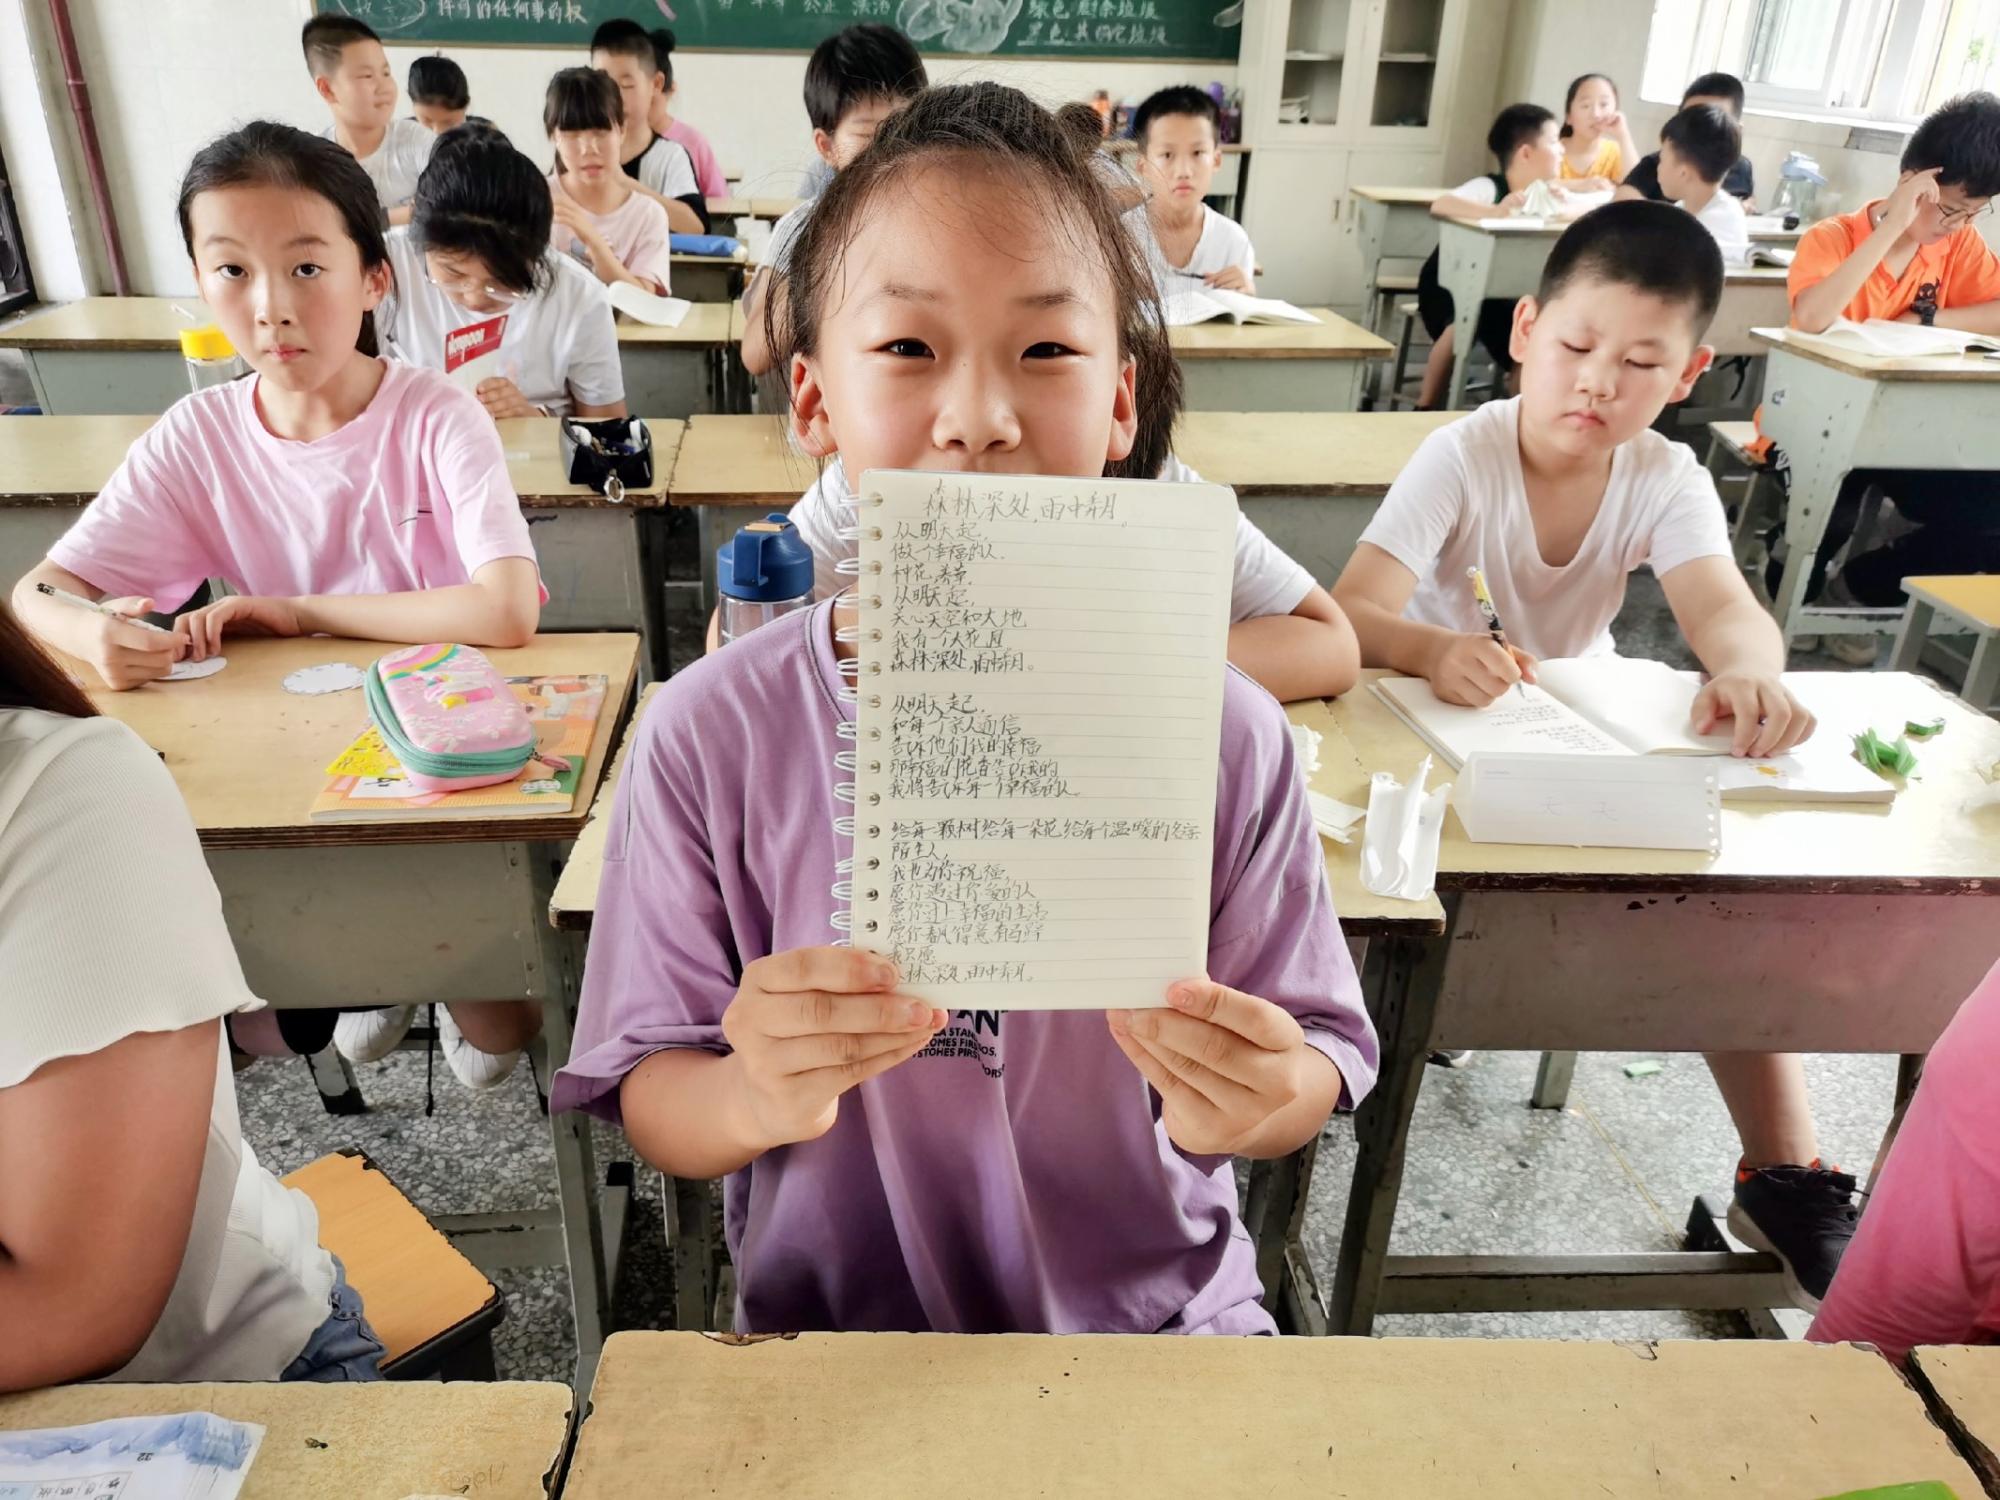 许可的任何事的权
公正 法治
绿色:厨余垃圾
黑色:其他垃圾
森林深处,雨中有月。
从明天起,
做一个幸福的人.
种花,养草,
从明天起,
关心天空和大地
我有一个大花园,
森林深处,雨中有月。
从明天起,
和每一个亲人通信
告诉他们我的幸福
那幸福的花香告诉我的
我将告诉每一个幸福的人。
给每一颗树给每一朵花给每个温暖的名字
陌生人,
我也为你祝福,
愿你遇过你爱的人
愿你过上幸福的生活
愿你春风得意有
我只愿
林深处,雨中有月。
COMES FIRST
天天
32